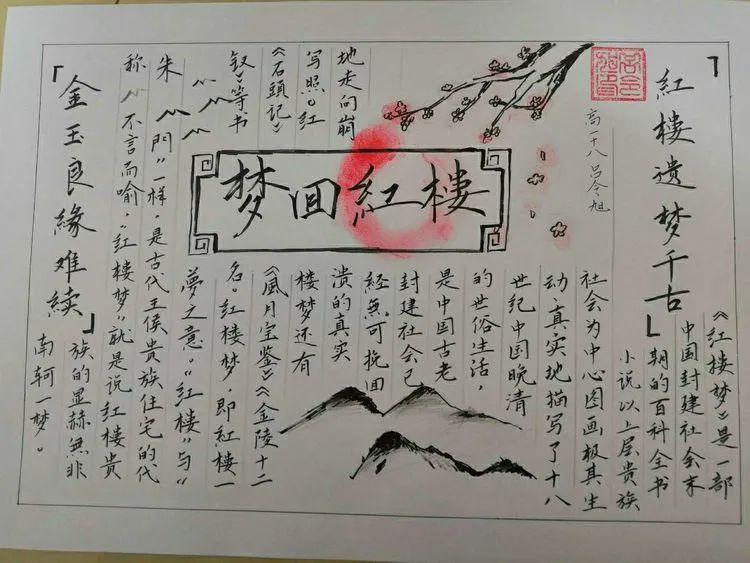 「紅楼遗梦千古」
高一十八 吕令旭
梦回紅楼
《红楼梦》是一部
中国封建社会末
期的百科全书
小说以上层贵族
社会为中心图画极其生
动、真实地描写了十八
世纪中国晚清
的世俗生活，
是中国古老
封建社会已
经無可挽回
地走向崩
潰的真实
写照。红
楼梦还有
《石頭记》
《風月宝鉴》《金陵十二
钗》等书
名。红楼梦，即紅楼一
夢之意。"红楼"与"
朱門"一样，是古代王侯贵族住宅的代
称，不言而喻，"红楼梦"就是说红楼贵
族的显赫無非
南轲一梦。
「金玉良緣难續」